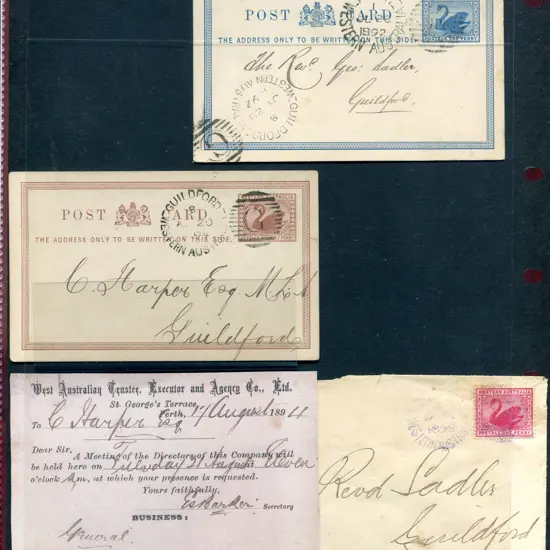 POST CARD
THE ADDRESS ONLY TO BE WRITTEN ON THIS SIDE.
1892
WESTERN AUSTRALIA
POSTAGE ONE PENNY
The Revd. Geo: Sadler,
Guildford.
GUILDFORD
WESTERN AUSTRALIA
POST CARD
THE ADDRESS ONLY TO BE WRITTEN ON THIS SIDE.
GUILDFORD
WESTERN AUSTRALIA
C. Harper Esq M.L.A
Guildford
West Australian Trustee, Executor and Agency Co., Ltd.
St. George's Terrace,
Perth, 17 August 1894
To C Harper Esq
Dear Sir,
A Meeting of the Directory of this Company will
be held here on Tuesday 21 August Eleven
o'clock a.m, at which your presence is requested.
Yours faithfully,
Secretary
BUSINESS:
General.
WESTERN AUSTRALIA
POSTAGE ONE PENNY
Revd Sadler
Guildford